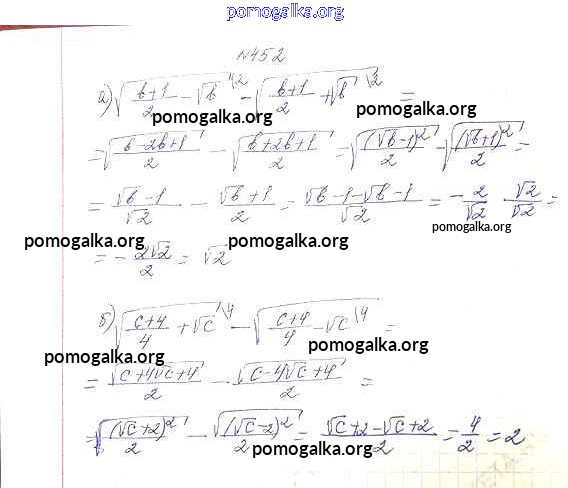 pomogalka.org
№452
а) √(b+1/2 - √b \2) - √(b+1/2 + √b \2) =
pomogalka.org pomogalka.org
= √(b-2b+1/2) - √(b+2b+1/2) = √((√b-1)²/2) - √((√b+1)²/2) =
= √b-1/√2 - √b+1/2 = √b-1-√b-1/√2 = -2/√2 · √2/√2 =
pomogalka.org pomogalka.org pomogalka.org
= -2√2/2 = √2
б) √(c+4/4 + √c \4) - √(c+4/4 - √c \4) =
pomogalka.org pomogalka.org
= √(c+4√c+4)/2 - √(c-4√c+4)/2 =
= √((√c+2)²)/2 - √((√c-2)²)/2 = √c+2-√c+2/2 = 4/2 = 2
pomogalka.org pomogalka.org